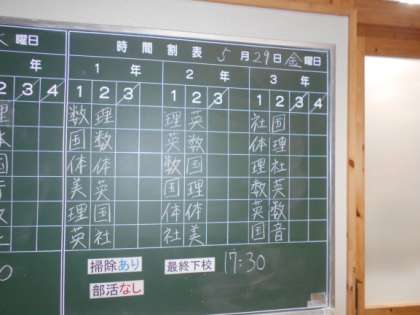 曜日 時間割表 5月29日金曜日
年 1年 2年 3年
2 3 4 1 2 3 1 2 3 1 2 3 4
理 数 理 理 英 社 国
体 国 数 英 数 体 理
国 体 体 数 国 理 社
音 美 英 国 理 数 英
理 国 体 体 英 数
英 社 社 美 国 音
掃除あり 最終下校 17:30
部活なし